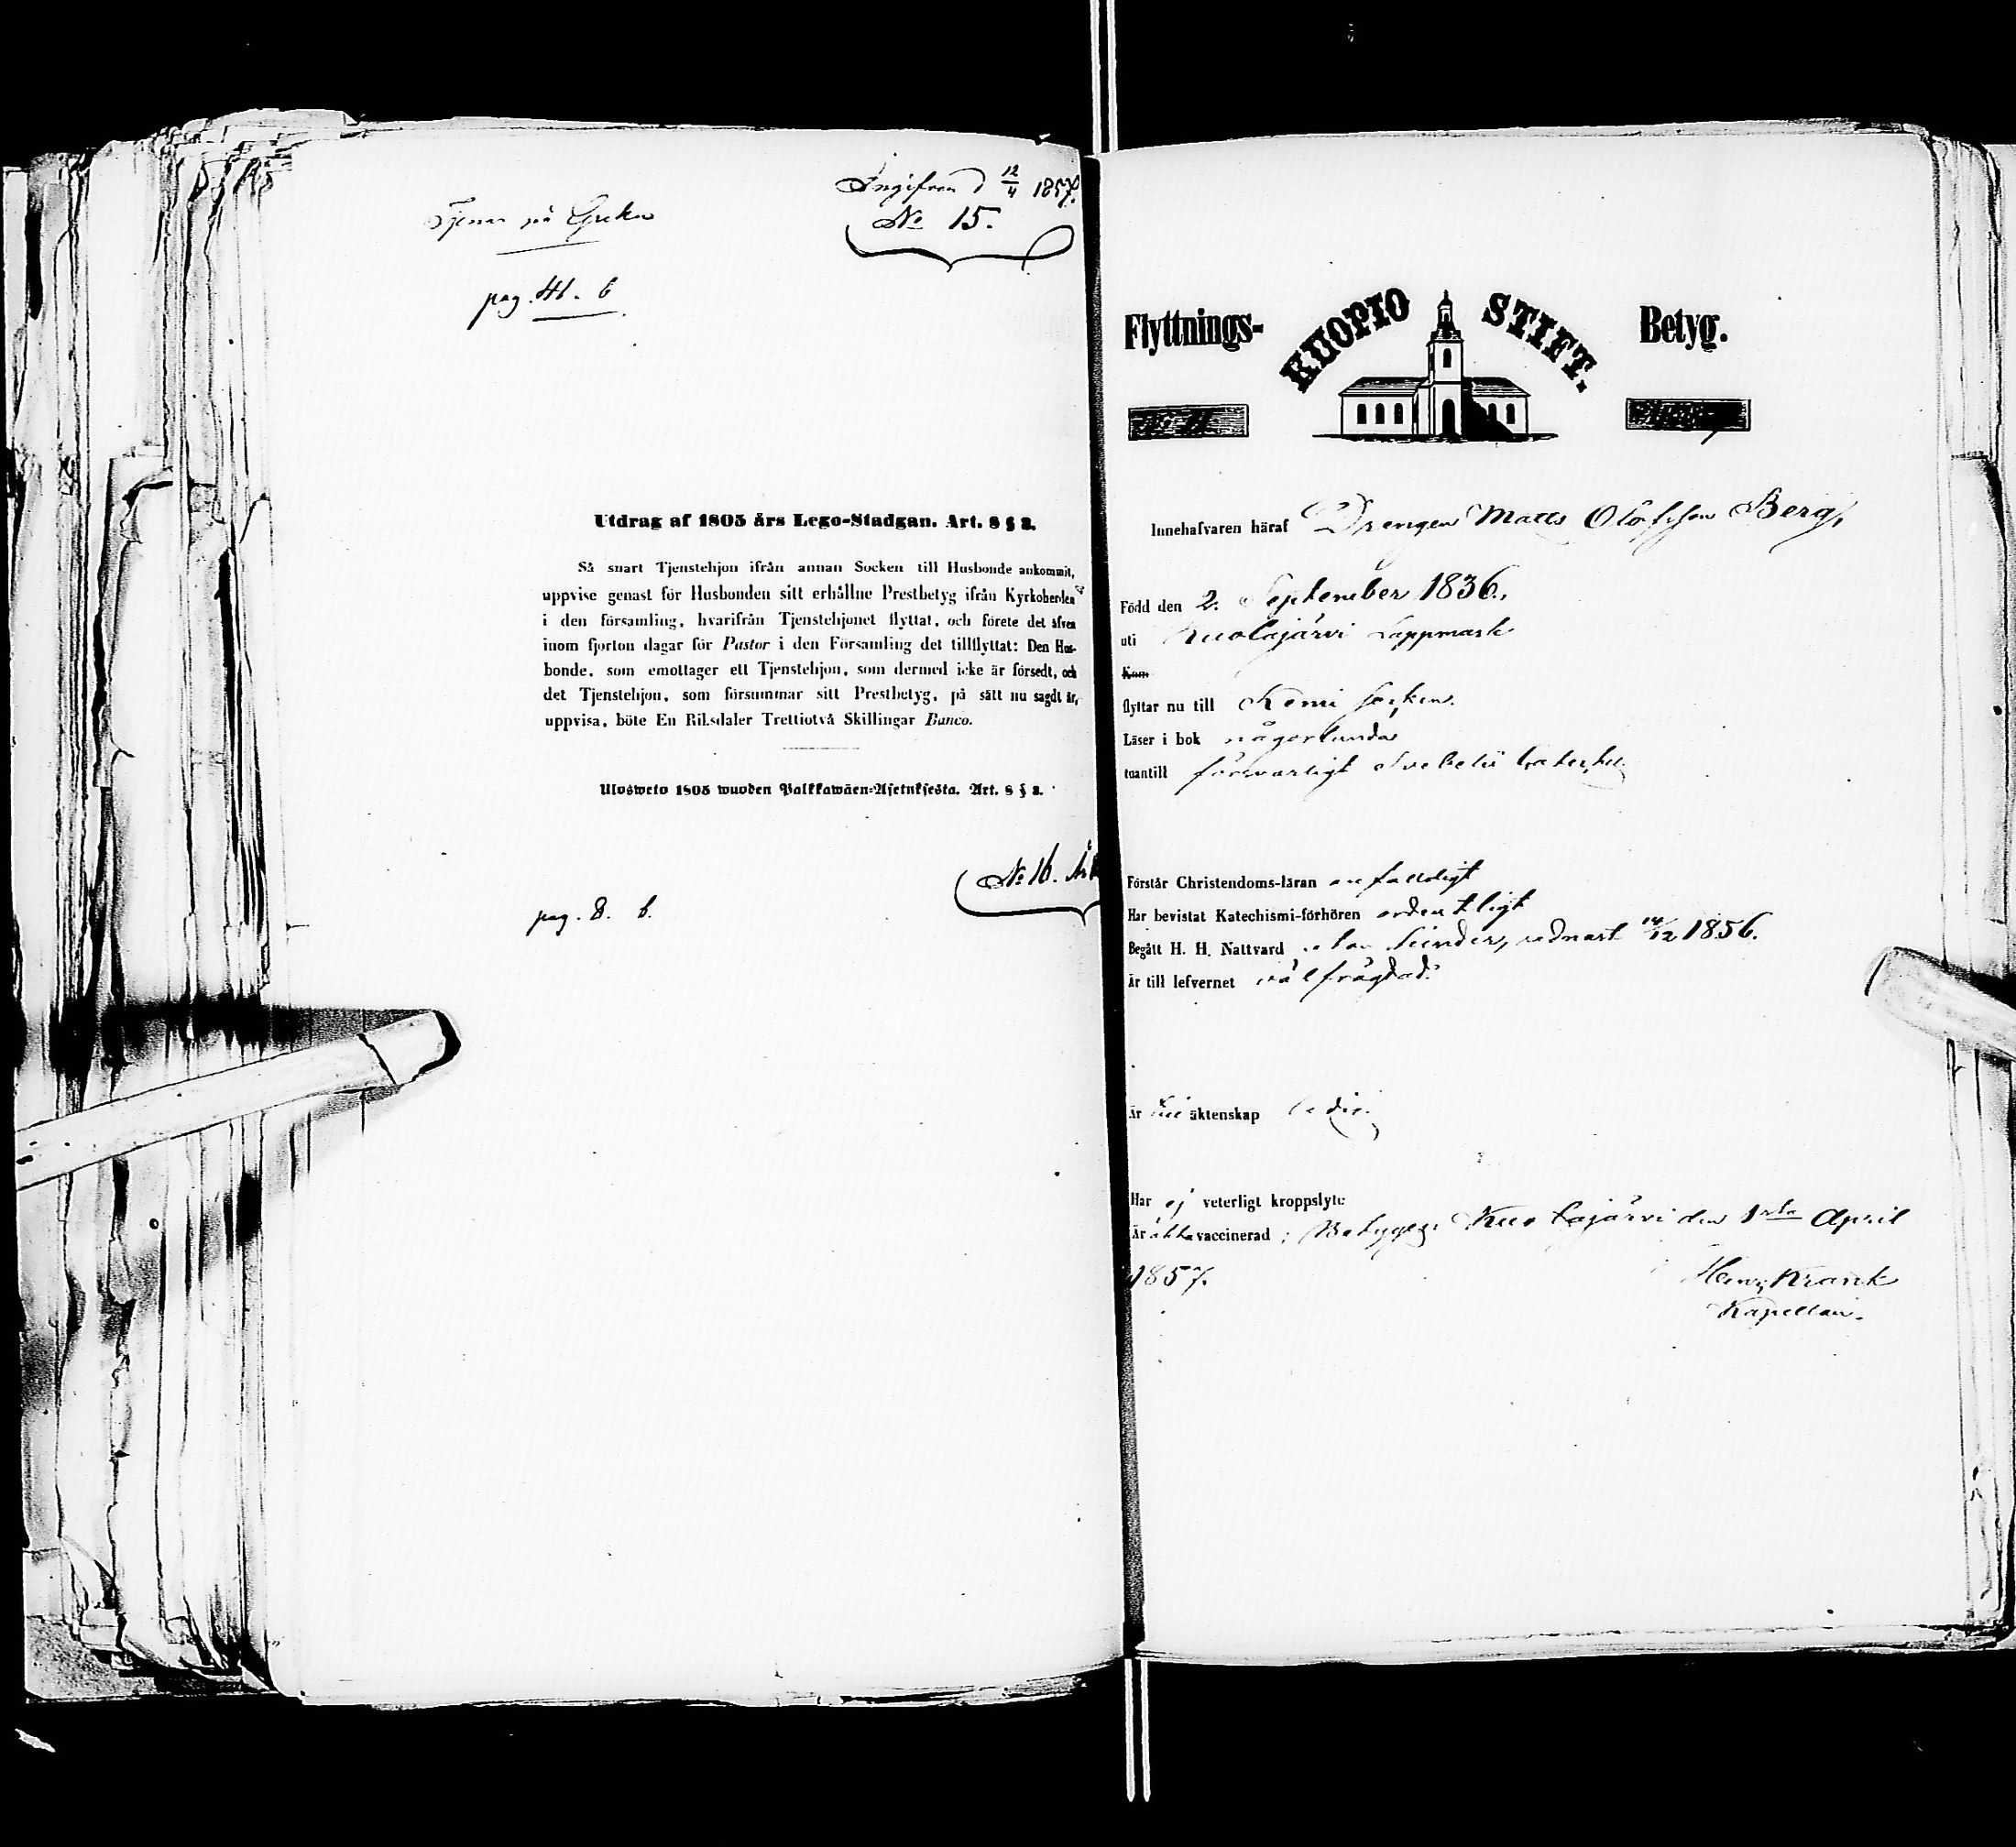 Ingifven d 12/4 1857.
No 15.
Tjenar på
pag. 41. b
Utdrag af 1805 års Lego-Stadgan. Art. 8 § 2.
Så snart Tjenstehjon ifrån annan Socken till Husbonde ankommit,
uppvise genast för Husbonden sitt erhållne Prestbetyg ifrån Kyrkoherden
i den församling, hvarifrån Tjenstehjonet flyttat, och förete det äfven
inom fjorton dagar för Pastor i den Församling det tillflyttat: Den Hus-
bonde, som emottager ett Tjenstehjon, som dermed icke är försedt, och
det Tjenstehjon, som försummar sitt Prestbetyg, på sätt nu sagdt är,
uppvisa, böte En Riksdaler Trettiotvå Skillingar Banco.
Ulosweto 1805 wuoden Palkkawäen-Asetuksesta. Art. 8 § 2.
No 16.
pag. 8. b.
Flyttnings- KUOPIO STIFT. Betyg.
Innehafvaren häraf Drengen Matts Olofsson Berg,
Född den 2. September 1836.,
uti Kuolajärvi Lappmark
Kom
flyttar nu till Kemi socken.
Läser i bok någorlunda
utantill försvarligt Svebelii Cateches
Förstår Christendoms-läran enfaldigt
Har bevistat Katechismi-förhören ordentligt
Begått H. H. Nattvard utan hinder, sednast 14/12 1856.
Är till lefvernet välfrägdad.
Är till äktenskap ledig.
Har ej veterligt kroppslyte
Är äkta vaccinerad; Betygar Kuolajärvi den 1sta April
1857.
Henr. Krank
Kapellan.